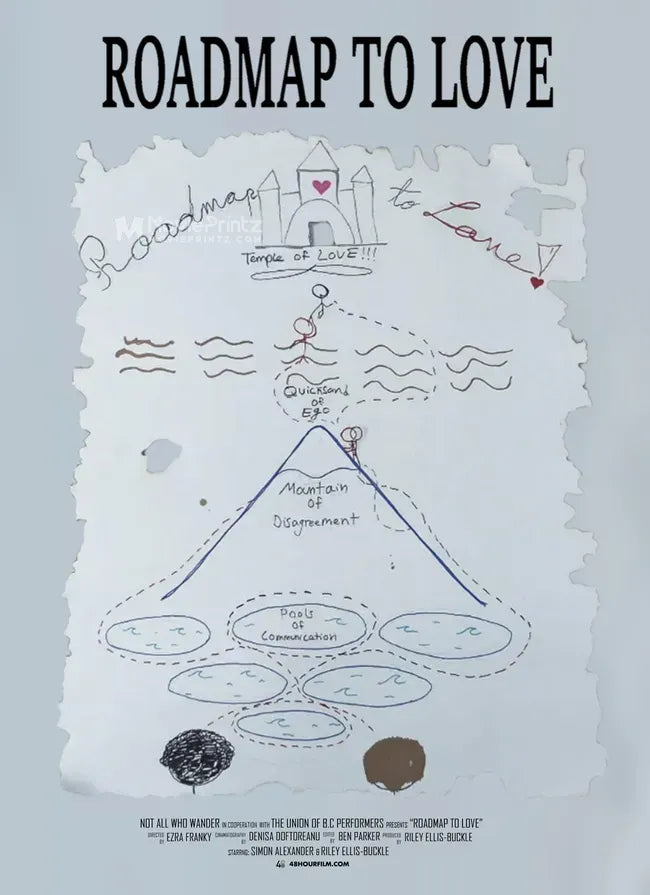 ROADMAP TO LOVE
Roadmap to Love!
MoviePrintz
MOVIEPRINTZ.COM
Temple of LOVE!!!
Quicksand
of
Ego
Mountain
of
Disagreement
Pools
of
Communication
NOT ALL WHO WANDER IN COOPERATION WITH THE UNION OF B.C PERFORMERS PRESENTS "ROADMAP TO LOVE"
DIRECTED BY EZRA FRANKY CINEMATOGRAPHY BY DENISA DOFTOREANU EDITED BY BEN PARKER PRODUCED BY RILEY ELLIS-BUCKLE
STARRING: SIMON ALEXANDER & RILEY ELLIS-BUCKLE
48 48HOURFILM.COM